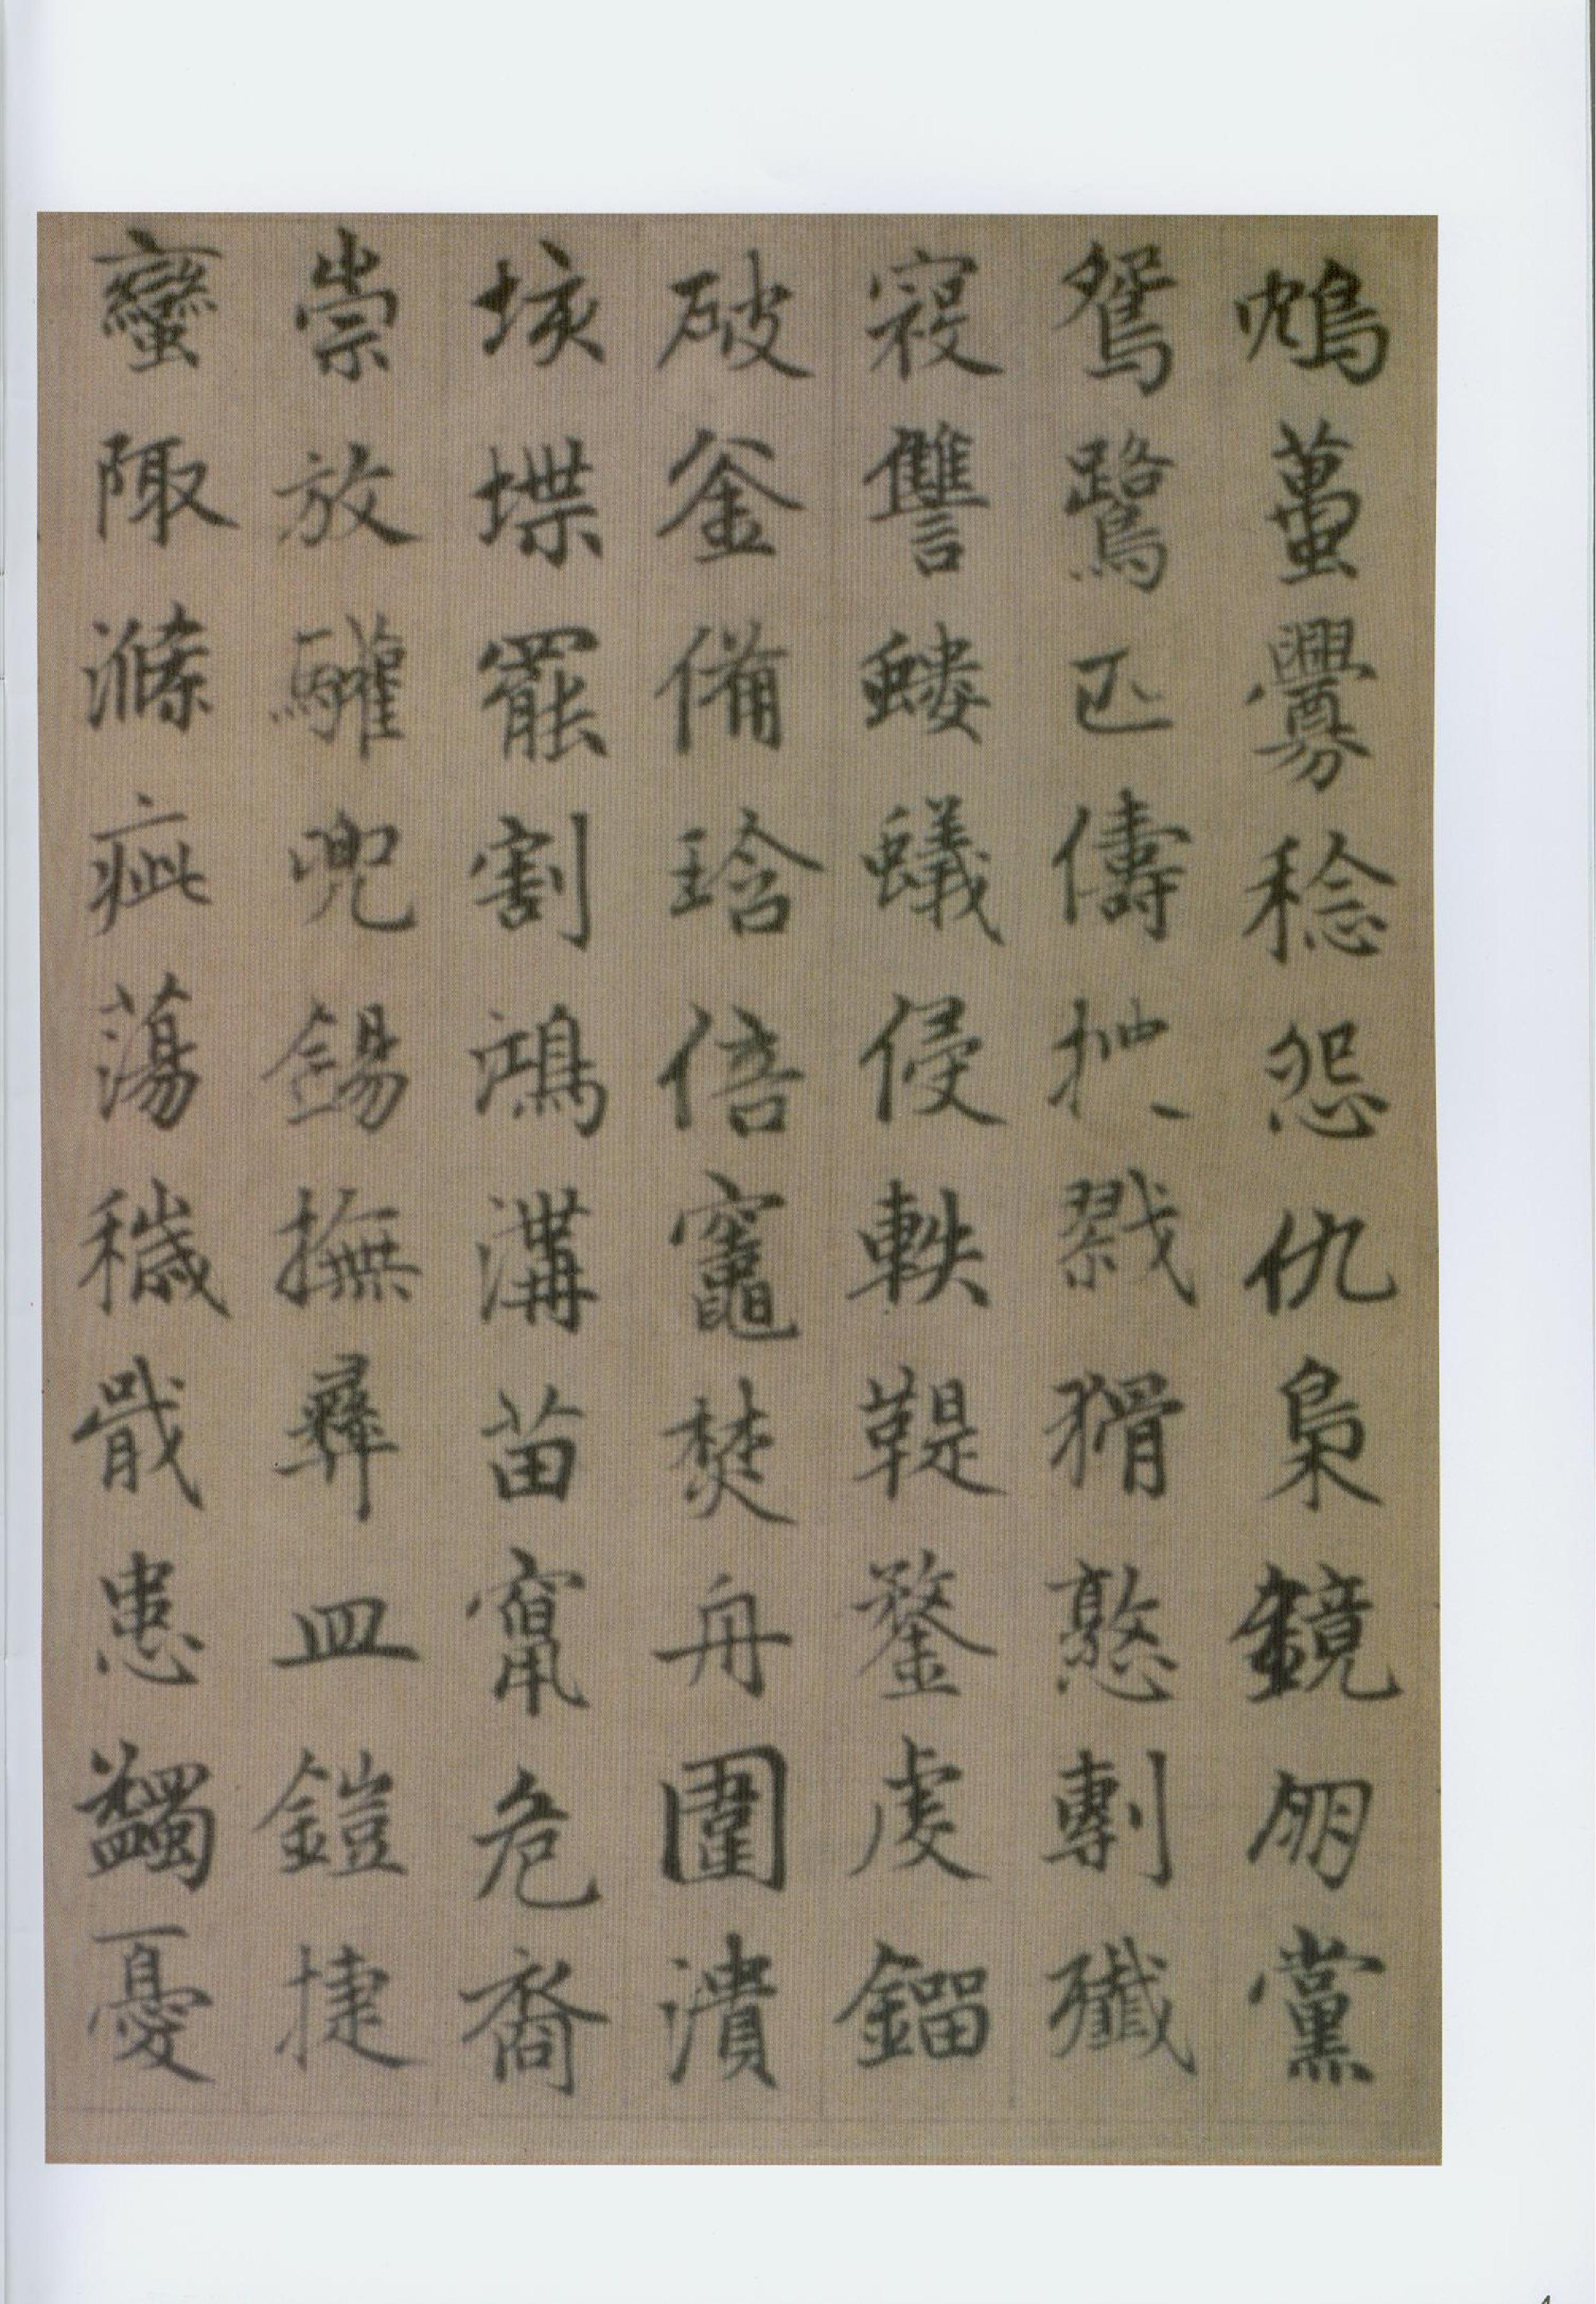 鴆蠆釁稔怨仇梟鏡朋黨
鴛鷺匹儔戮猾憝剸殲
寇讎螻蟻侵軼鞮鍪虔鎦
破釜備琀倍竈焚舟圍潰
垓堞罷割鴻溝苗竄危裔
崇放驩兜錫撫彝皿鎧捷
蠻陬滌疵蕩穢戢患蠲憂